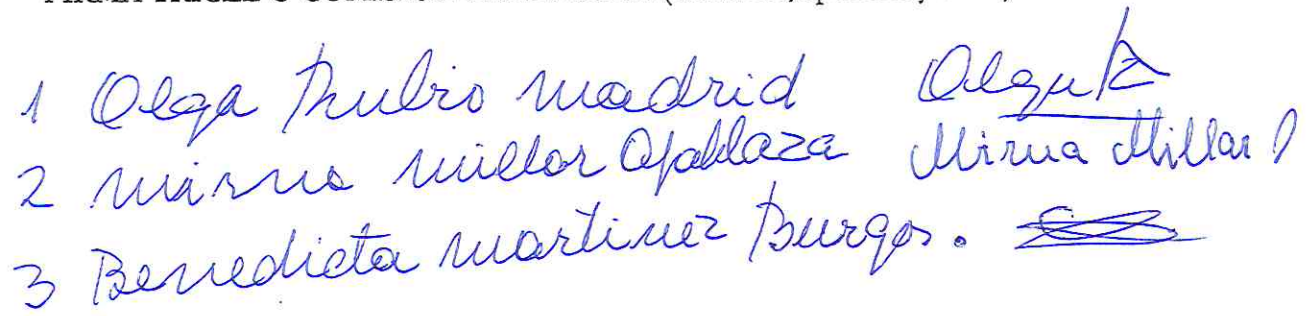 1 Olga Rubio madrid Olga R
2 mirna millar Opablaza Mirna Millar O
3 Benedicta martinez Burgos.